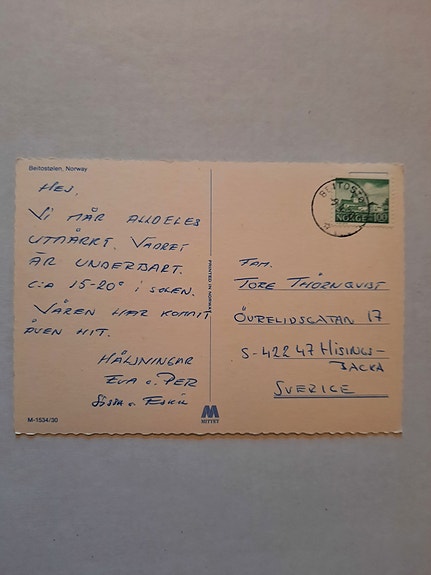 Beitostølen, Norway
Hej.
Vi mår alldeles
utmärkt. Vädret
är underbart.
c:a 15-20° i solen.
Våren har kommit
även hit.
Hälsningar
Eva o. Per
Sissa o. Eskil
M-1534/30
PRINTED IN NORWAY
M
MITTET
BEITOST
NORGE 100
Fam.
Tore Thörnqvist
Övrelidsgatan 17
S-422 47 Hisings-
Backa
Sverige